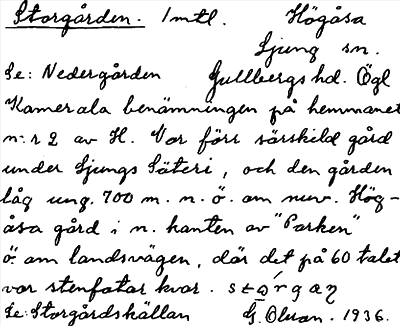 Storgården. 1 mtl. Högåsa
Ljung sn.
Se: Nedergården Gullbergs hd. Ögl
Kamerala benämningen på hemmanet
n:r 2 av H. Var förr särskild gård
under Ljungs Säteri, och den gården
låg ung. 700 m. n. ö. om nuv. Hög-
åsa gård i n. kanten av "Parken"
ö. om landsvägen, där det på 60 talet
var stenfotar kvar.
Se: Storgårdskällan G. Olson. 1936.